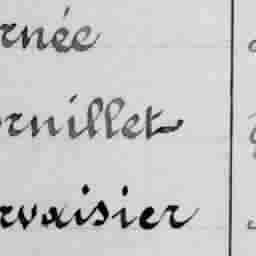 rnée
ornillet
rvaisier